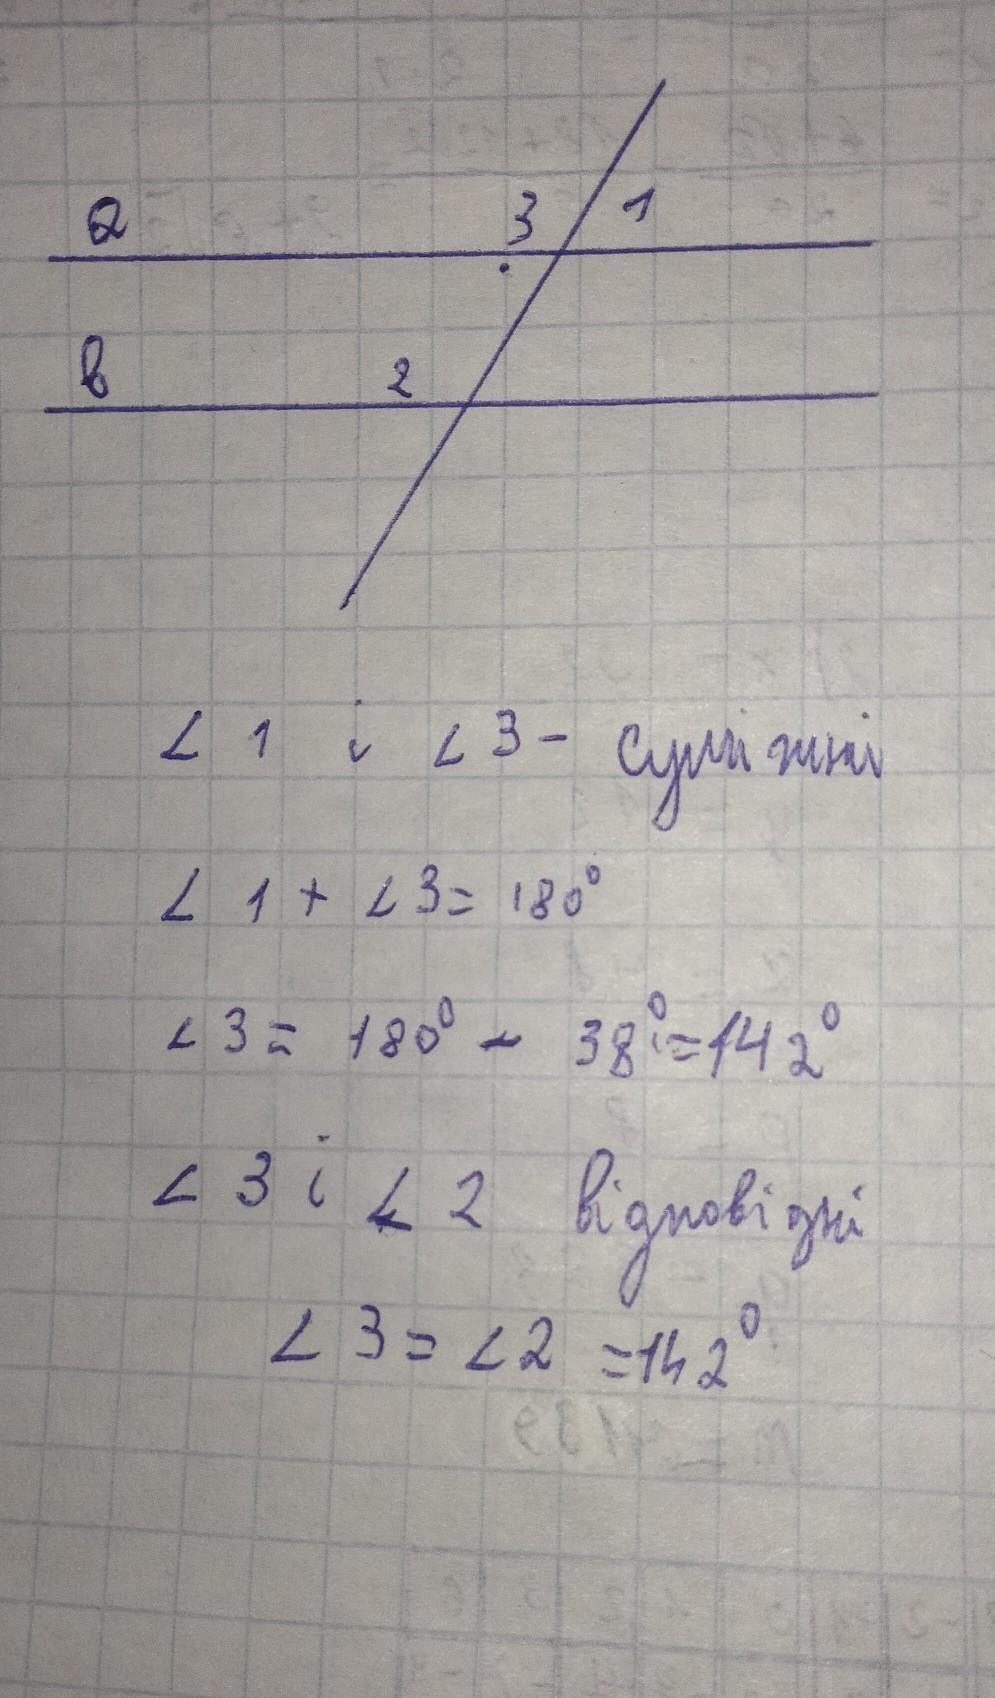 a
3 1
в
2
∠ 1 і ∠ 3 - суміжні
∠ 1 + ∠ 3 = 180°
∠ 3 = 180° - 38° = 142°
∠ 3 і ∠ 2 відповідні
∠ 3 = ∠ 2 = 142°